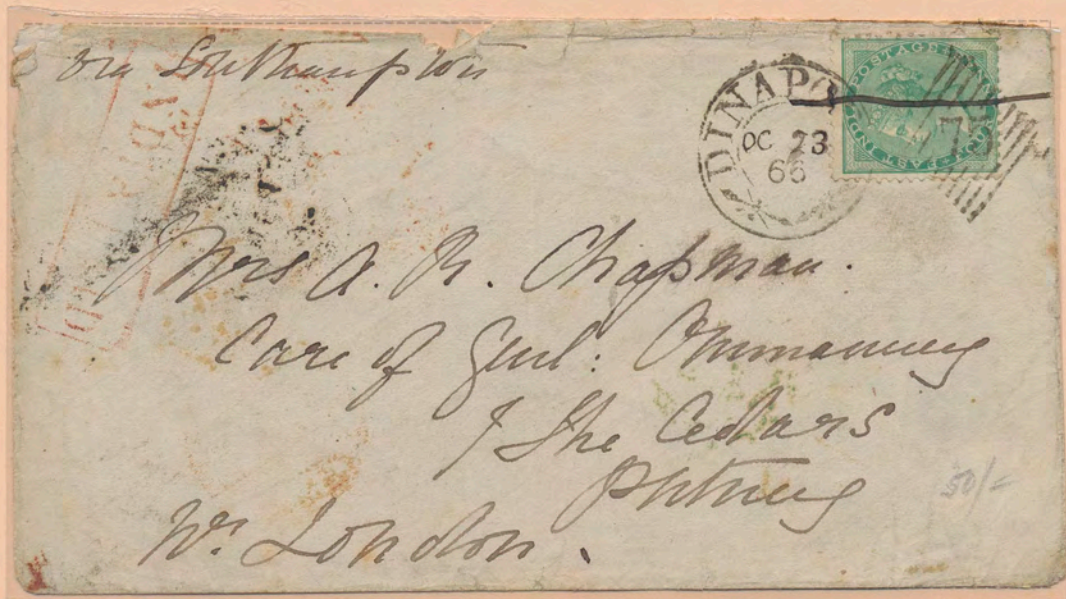 via Southampton
DINAPO
OC 23
66
POSTAGE
EAST IND
Mrs A. R. Chapman.
Care of Genl: Ommanney
7 The Cedars
Putney
W. London.
50/=